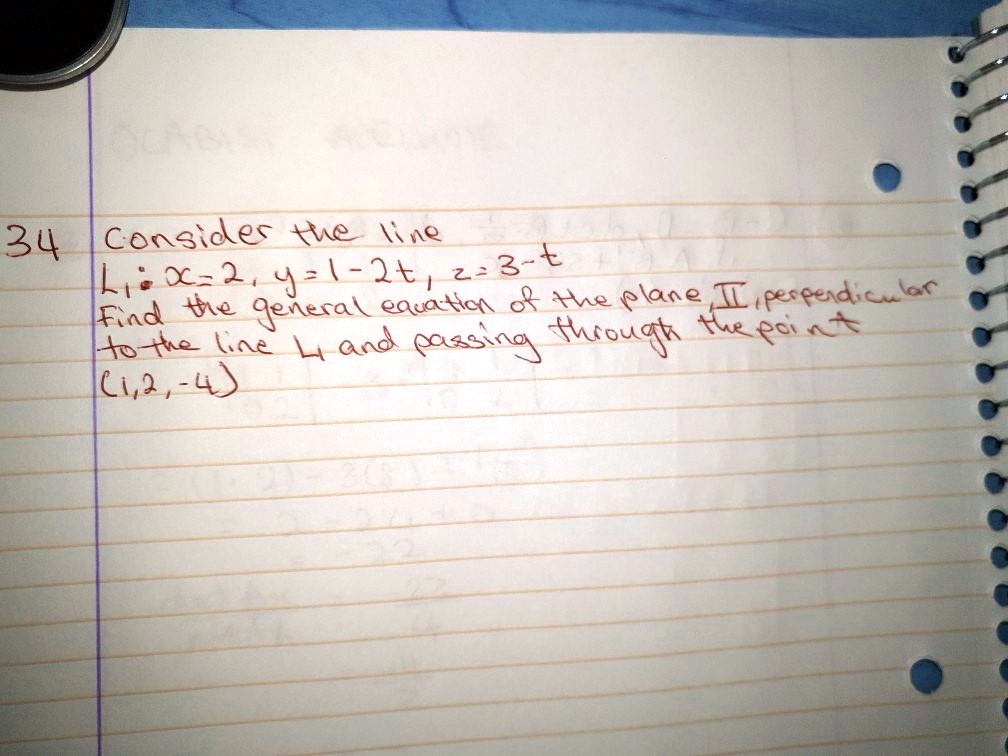 34 Consider the line
L₁: x=2, y=1-2t, z=3-t
Find the general equation of the plane, II, perpendicular
to the line L₁ and passing through the point
(1,2,-4)